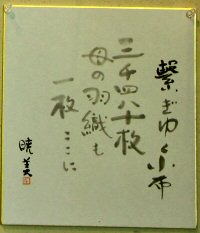 繋ぎゆく小布
三千四八十枚
母の羽織も
一枚ここに
暁美